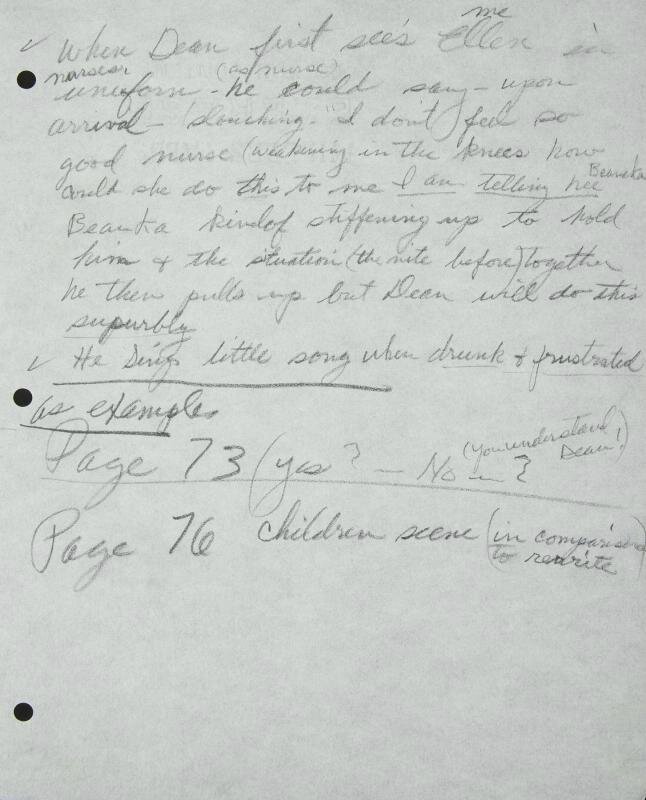 me
✓ When Dean first see's Ellen in
nurses (as nurse)
uniform - he could say - upon
arrival - slouching - "I don't feel so
good nurse (weakening in the knees how
could she do this to me I am telling
Beauka kindof stiffening up to hold
him & the situation (the nite before) together
he then pulls up but Dean will do this
supurbly
✓ He sings little song when drunk & frustrated
as example
Page 73 (yes? — No — ?
(You understand
Dean!)
Page 76 children scene (in comparison
to rewrite